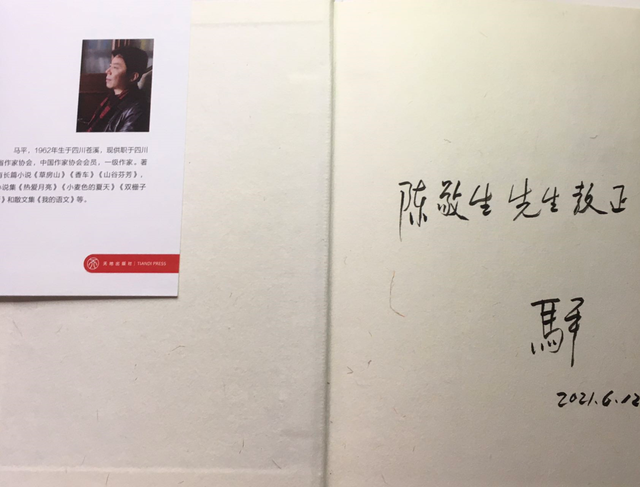 马平，1962年生于四川苍溪，现供职于四川
作家协会，中国作家协会会员，一级作家。著
长篇小说《草房山》《香车》《山谷芬芳》，
小说集《热爱月亮》《小麦色的夏天》《双栅子
》和散文集《我的语文》等。
天地出版社 | TIANDI PRESS
陈敬生先生教正
馬平
2021.6.12